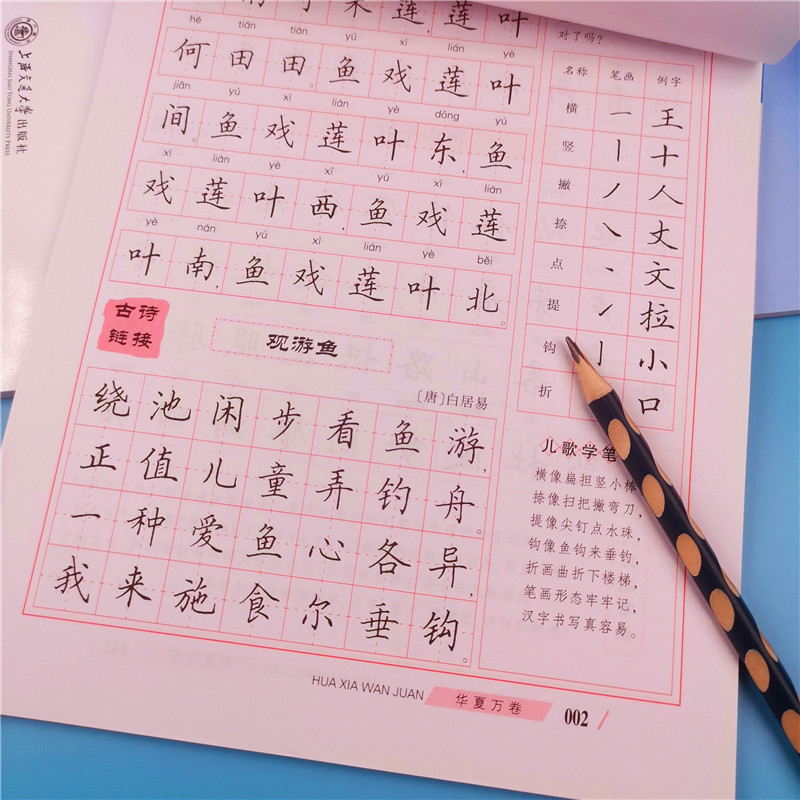 上海交通大学出版社
SHANGHAI JIAO TONG UNIVERSITY PRESS
南可采莲,莲叶
hé tián tián yú xì lián yè
何田田。鱼戏莲叶
jiān yú xì lián yè dōng yú
间。鱼戏莲叶东,鱼
xì lián yè xī yú xì lián
戏莲叶西,鱼戏莲
yè nán yú xì lián yè běi
叶南,鱼戏莲叶北。
古诗
链接
观游鱼
〔唐〕白居易
绕池闲步看鱼游,
正值儿童弄钓舟。
一种爱鱼心各异,
我来施食尔垂钩。
对了吗?
名称 笔画 例字
横 一 王
竖 丨 十
撇 丿 人
捺 ㇏ 丈
点 丶 文
提 ㇀ 拉
钩 亅 小
折 口
儿歌学笔
横像扁担竖小棒,
捺像扫把撇弯刀,
提像尖钉点水珠,
钩像鱼钩来垂钩,
折画曲折下楼梯,
笔画形态牢牢记,
汉字书写真容易。
HUA XIA WAN JUAN
华夏万卷
002